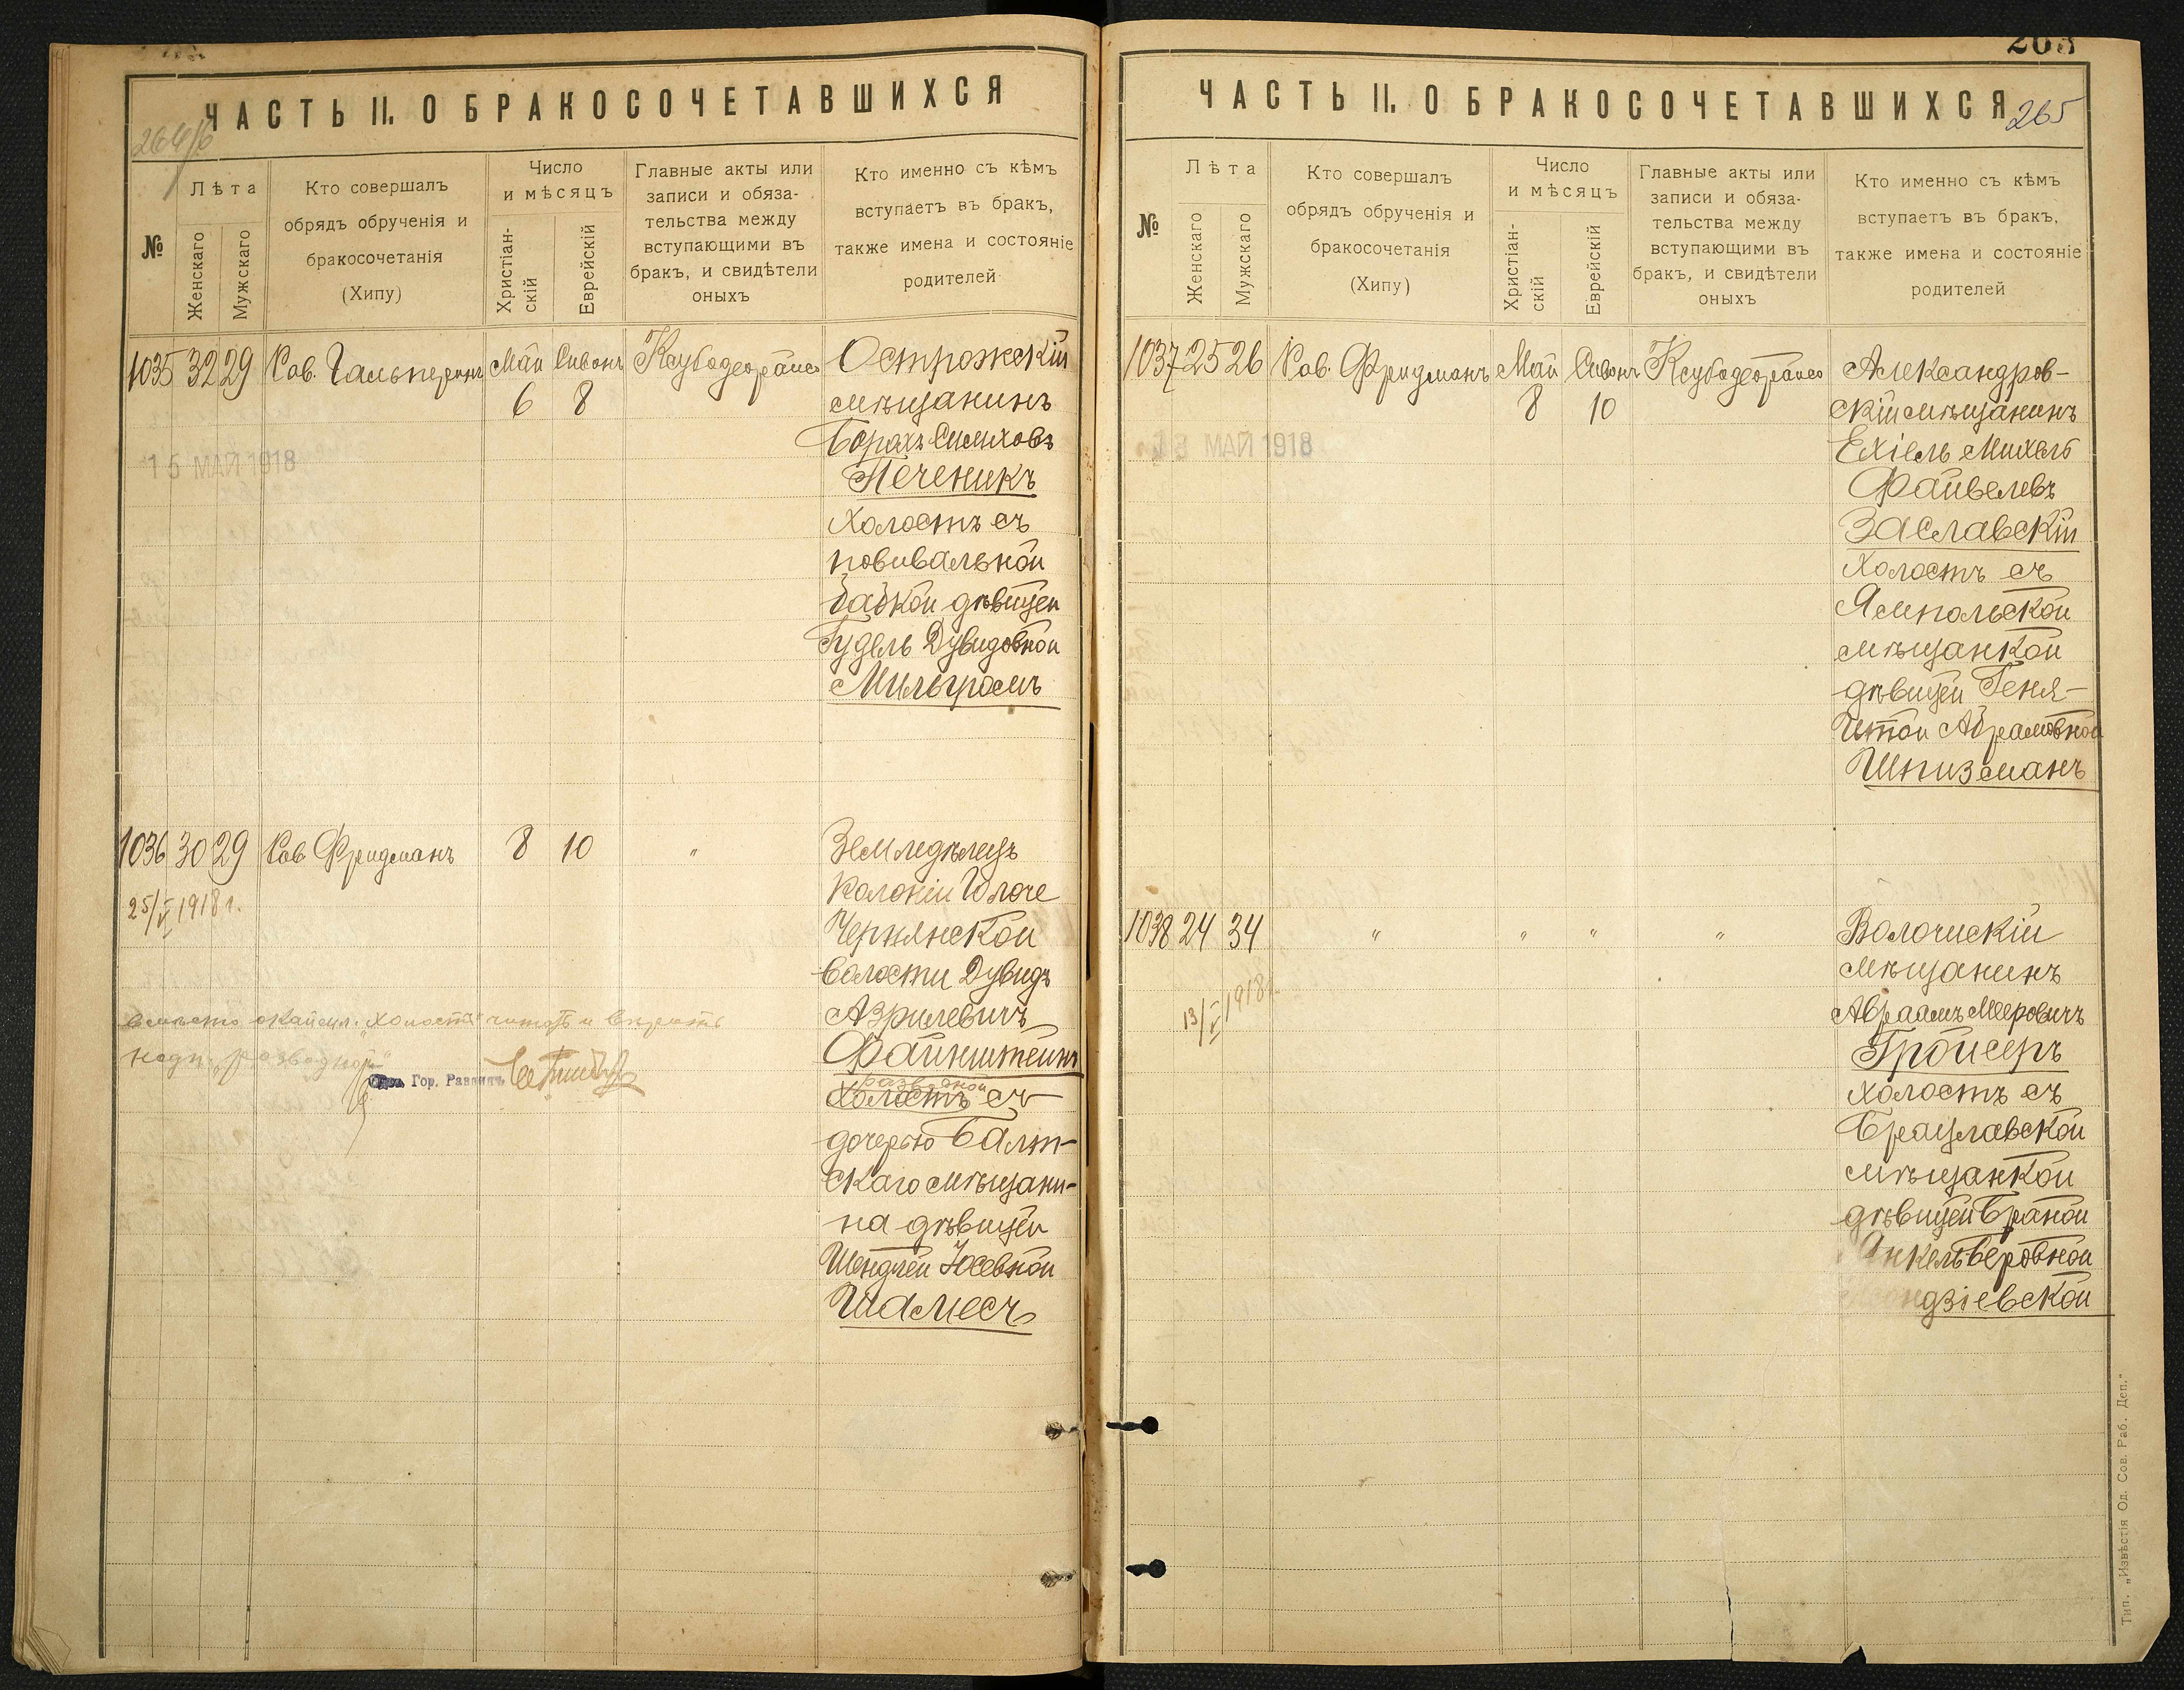 ЧАСТЬ II. О БРАКОСОЧЕТАВШИХСЯ
№
Лѣта
Женскаго
Мужскаго
Кто совершалъ
обрядъ обрученія и
бракосочетанія
(Хипу)
Число
и мѣсяцъ
Христіан-
скій
Еврейскій
Главные акты или
записи и обяза-
тельства между
вступающими въ
бракъ, и свидѣтели
оныхъ
Кто именно съ кѣмъ
вступаетъ въ бракъ,
также имена и состояніе
родителей
1035 32 29 Рав. Гальперинъ Май Сивонъ Ксубодеорайсо Острожскій
6 8 мѣщанинъ
Борахъ Симховъ
15 МАЙ 1918
Печеникъ
холостъ съ
повивальной
бабкой дѣвицей
Гудель Дувидовной
Мильгромъ
1036 30 29 Рав. Фридманъ 8 10 " Земледѣлецъ
колоніи Юлоче
25/V 1918 г.
Чернянской
волости Дувидъ
Азрилевичъ
Файнштейнъ
разводной
холостъ съ
дочерью Балт-
скаго мѣщани-
на дѣвицей
Шендлей Юсевной
Шамесъ
"холостъ" читать и вѣрить
надп. "разводной"
Гор. Раввинъ
ЧАСТЬ II. О БРАКОСОЧЕТАВШИХСЯ
265
№
Лѣта
Женскаго
Мужскаго
Кто совершалъ
обрядъ обрученія и
бракосочетанія
(Хипу)
Число
и мѣсяцъ
Христіан-
скій
Еврейскій
Главные акты или
записи и обяза-
тельства между
вступающими въ
бракъ, и свидѣтели
оныхъ
Кто именно съ кѣмъ
вступаетъ въ бракъ,
также имена и состояніе
родителей
1037 25 26 Рав. Фридманъ Май Сивонъ Ксубодеорайсо Александров-
8 10 скій мѣщанинъ
МАЙ 1918
Ехіель Михель
Файвелевъ
Заславскій
холостъ съ
Ямпольской
мѣщанкой
дѣвицей Геня-
Итой Абрамовной
Шпизманъ
1038 24 34 " " " " Волочискій
мѣщанинъ
13/V 1918 г.
Авраамъ Мееровичъ
Гройсеръ
холостъ съ
Брацлавской
мѣщанкой
дѣвицей Браной
Янкель Беровной
Тип. „Извѣстія Од. Сов. Раб. Деп."